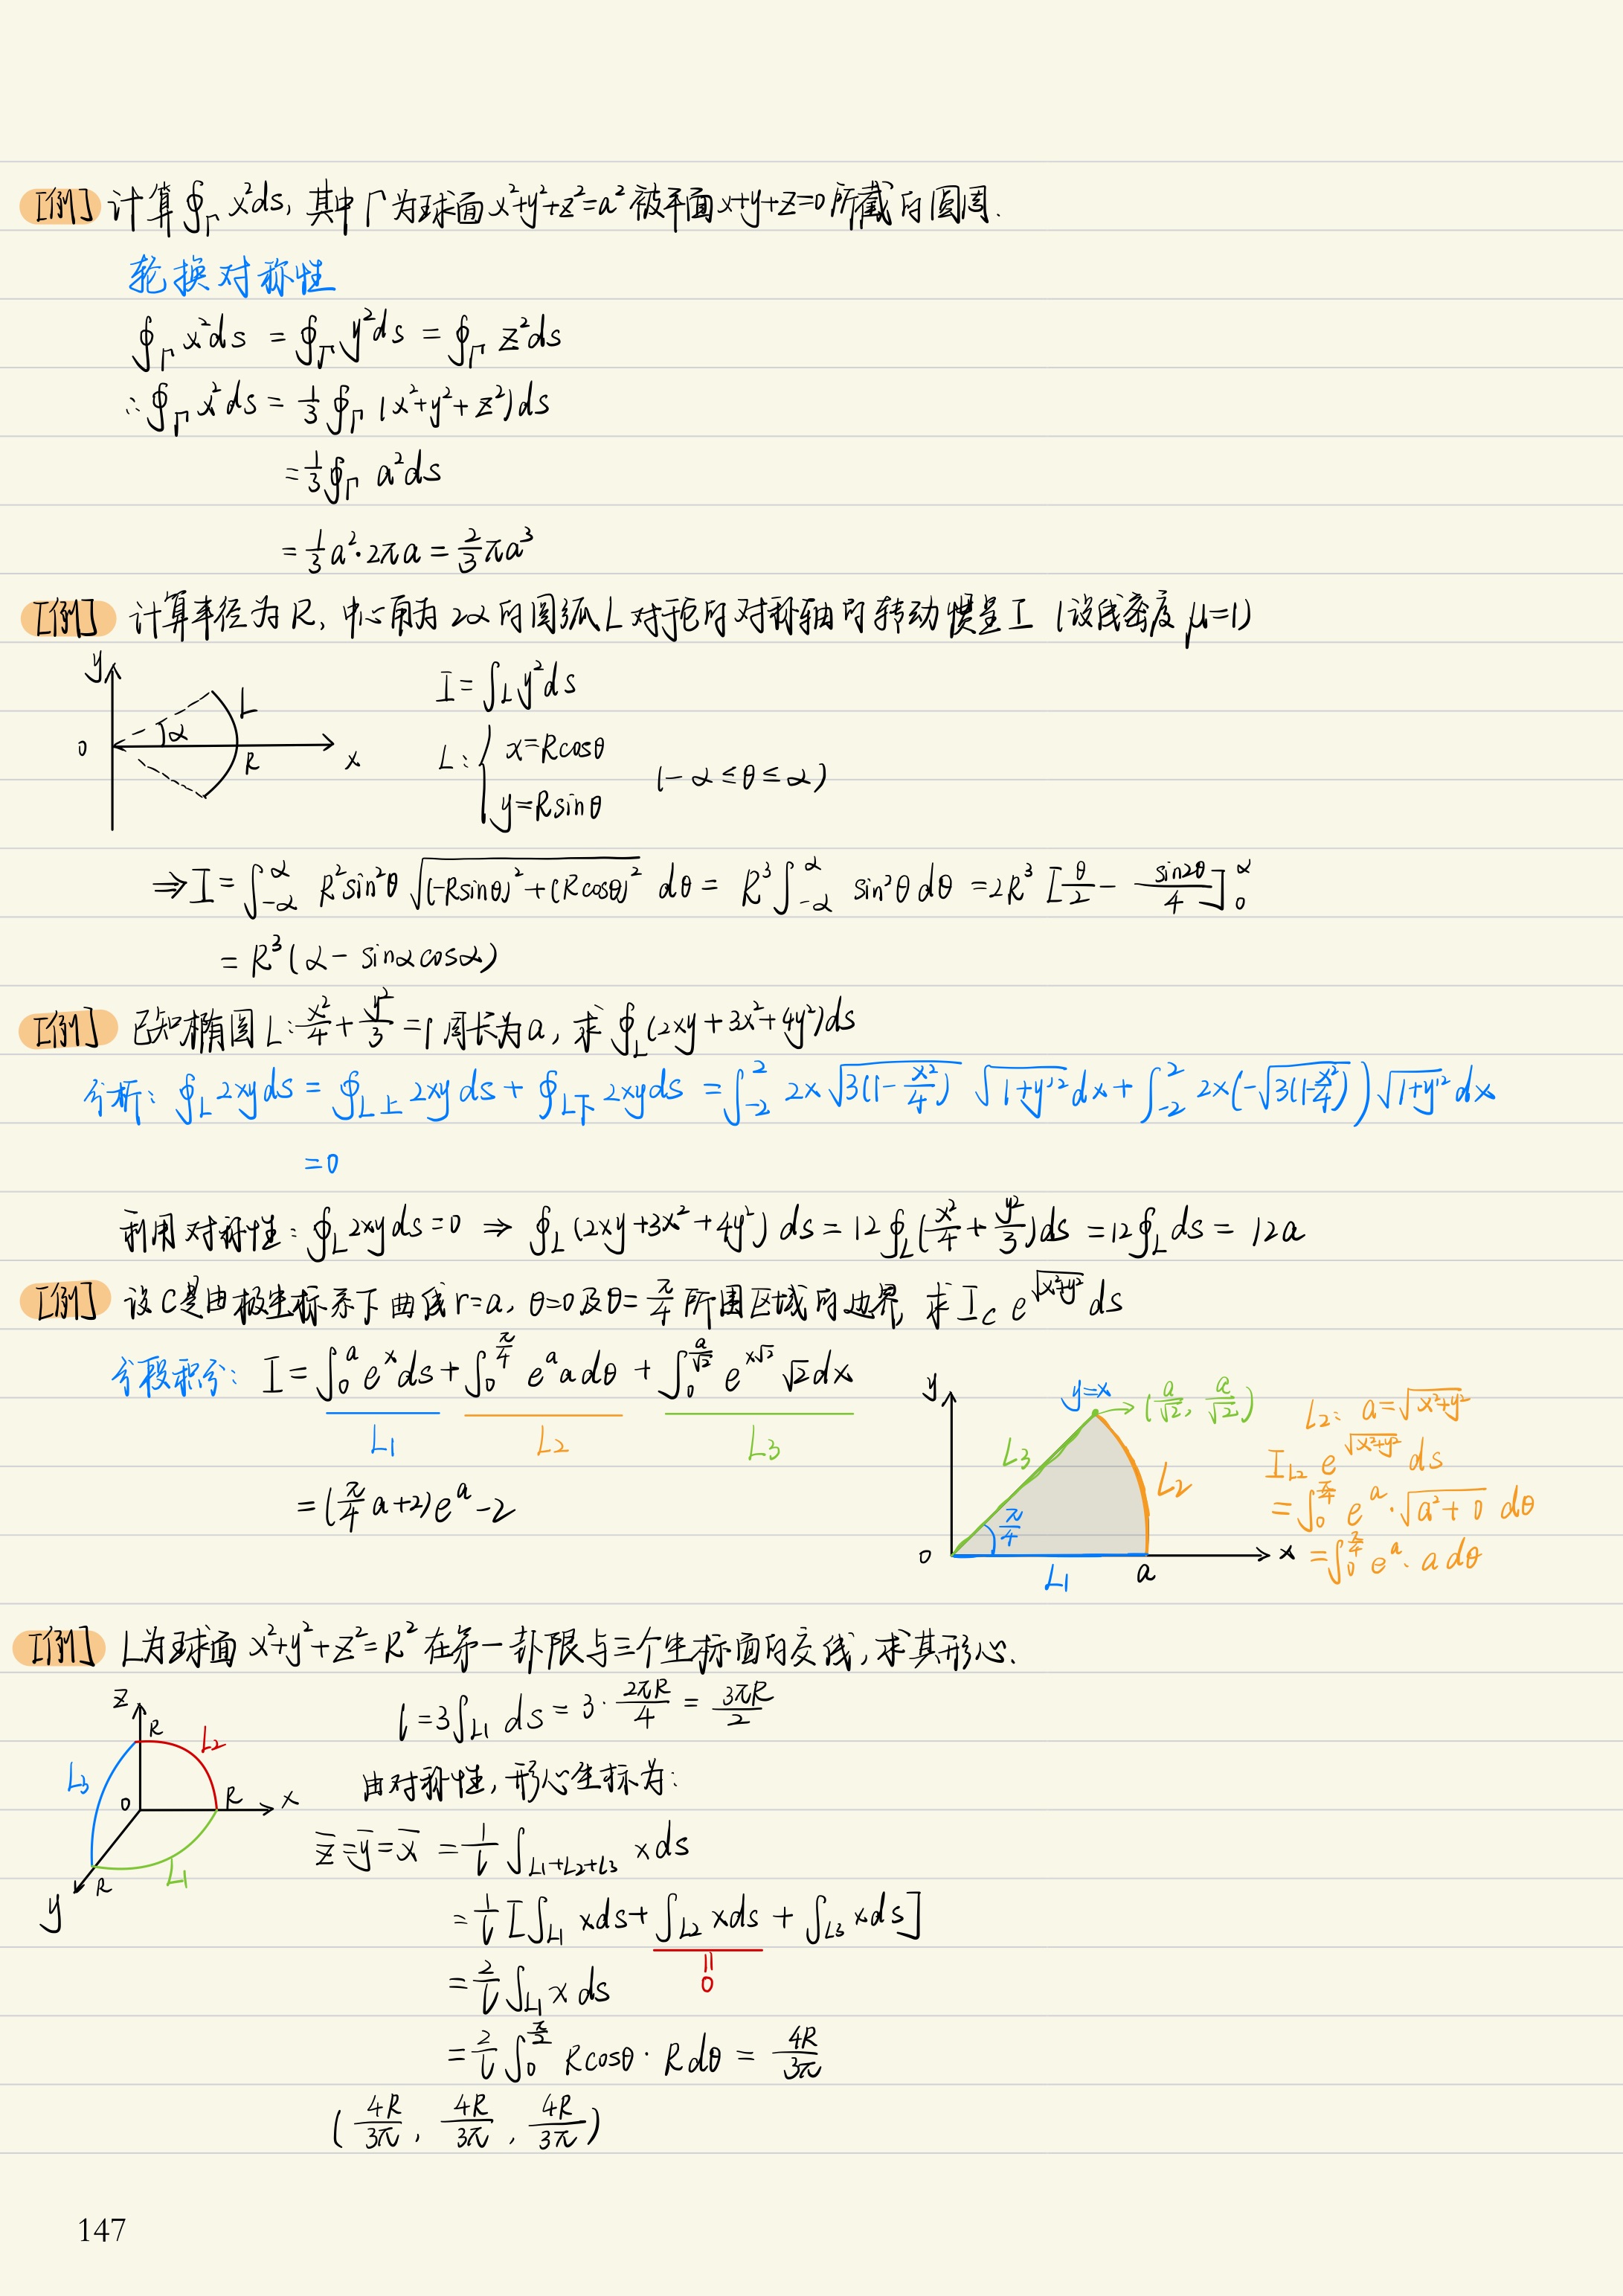 [例] 计算∮_Γ x²ds, 其中Γ为球面x²+y²+z²=a²被平面x+y+z=0所截的圆周.
轮换对称性
∮_Γ x²ds = ∮_Γ y²ds = ∮_Γ z²ds
∴∮_Γ x²ds = 1/3 ∮_Γ (x²+y²+z²)ds
= 1/3 ∮_Γ a²ds
= 1/3 a²·2πa = 2/3 πa³
[例] 计算半径为R, 中心角为2α的圆弧L对于它的对称轴的转动惯量I (设线密度μ=1)
y
L
α
0
R
x
I = ∫_L y²ds
L: { x=Rcosθ
y=Rsinθ (-α≤θ≤α)
⇒ I = ∫_{-α}^{α} R²sin²θ √((-Rsinθ)²+(Rcosθ)²) dθ = R³∫_{-α}^{α} sin²θ dθ = 2R³ [θ/2 - sin2θ/4]_0^α
= R³(α - sinαcosα)
[例] 已知椭圆L: x²/4 + y²/3 = 1周长为a, 求∮_L (2xy+3x²+4y²)ds
分析: ∮_L 2xyds = ∮_{L上} 2xyds + ∮_{L下} 2xyds = ∫_{-2}^{2} 2x√(3(1-x²/4)) √(1+y'²)dx + ∫_{-2}^{2} 2x(-√(3(1-x²/4)))√(1+y'²)dx
=0
利用对称性: ∮_L 2xyds=0 ⇒ ∮_L (2xy+3x²+4y²)ds = 12∮_L (x²/4+y²/3)ds = 12∮_L ds = 12a
[例] 设C是由极坐标系下曲线r=a, θ=0及θ=π/4所围区域的边界, 求I_C e^{√(x²+y²)}ds
分段积分: I = ∫_0^a e^x ds + ∫_0^{π/4} e^a a dθ + ∫_0^{a/√2} e^{x√2} √2dx
L1 L2 L3
= (π/4 a+2)e^a - 2
y
y=x
→(a/√2, a/√2)
L3
L2
π/4
0
L1
a
x
L2: a=√(x²+y²)
I_{L2} e^{√(x²+y²)} ds
= ∫_0^{π/4} e^a·√(a²+0) dθ
= ∫_0^{π/4} e^a·a dθ
[例] L为球面x²+y²+z²=R²在第一卦限与三个坐标面的交线, 求其形心.
z
R
L2
L3
0
R
x
L1
R
y
l = 3∫_{L1} ds = 3·2πR/4 = 3πR/2
由对称性, 形心坐标为:
z̄=ȳ=x̄ = 1/l ∫_{L1+L2+L3} xds
= 1/l [∫_{L1} xds + ∫_{L2} xds + ∫_{L3} xds]
=
0
= 2/l ∫_{L1} xds
= 2/l ∫_0^{π/2} Rcosθ·Rdθ = 4R/3π
(4R/3π, 4R/3π, 4R/3π)
147